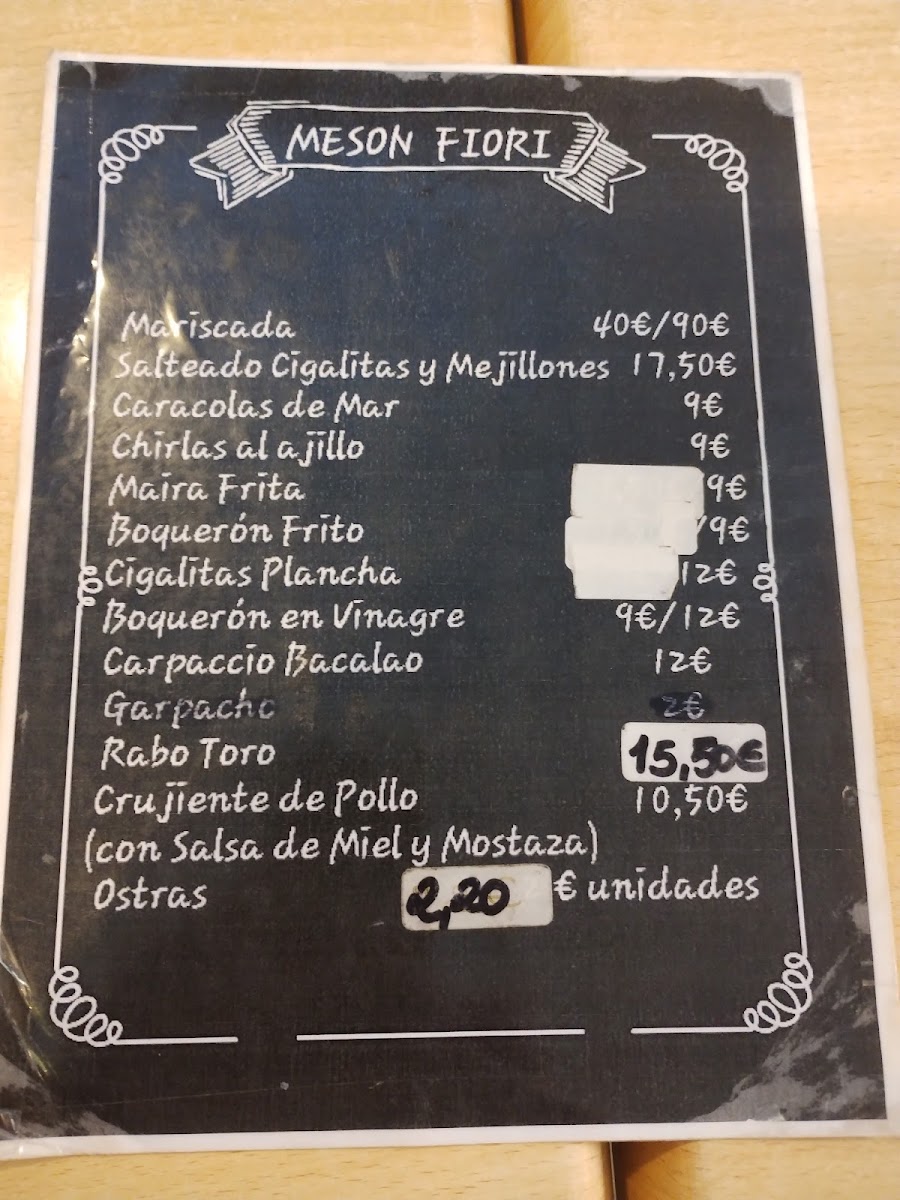 MESON FIORI
Mariscada 40€/90€
Salteado Cigalitas y Mejillones 17,50€
Caracolas de Mar 9€
Chirlas al ajillo 9€
Maira Frita 9€
Boquerón Frito /9€
Cigalitas Plancha 12€
Boquerón en Vinagre 9€/12€
Carpaccio Bacalao 12€
Garpacho 2€
Rabo Toro 15,50€
Crujiente de Pollo 10,50€
(con Salsa de Miel y Mostaza)
Ostras 2,20 € unidades